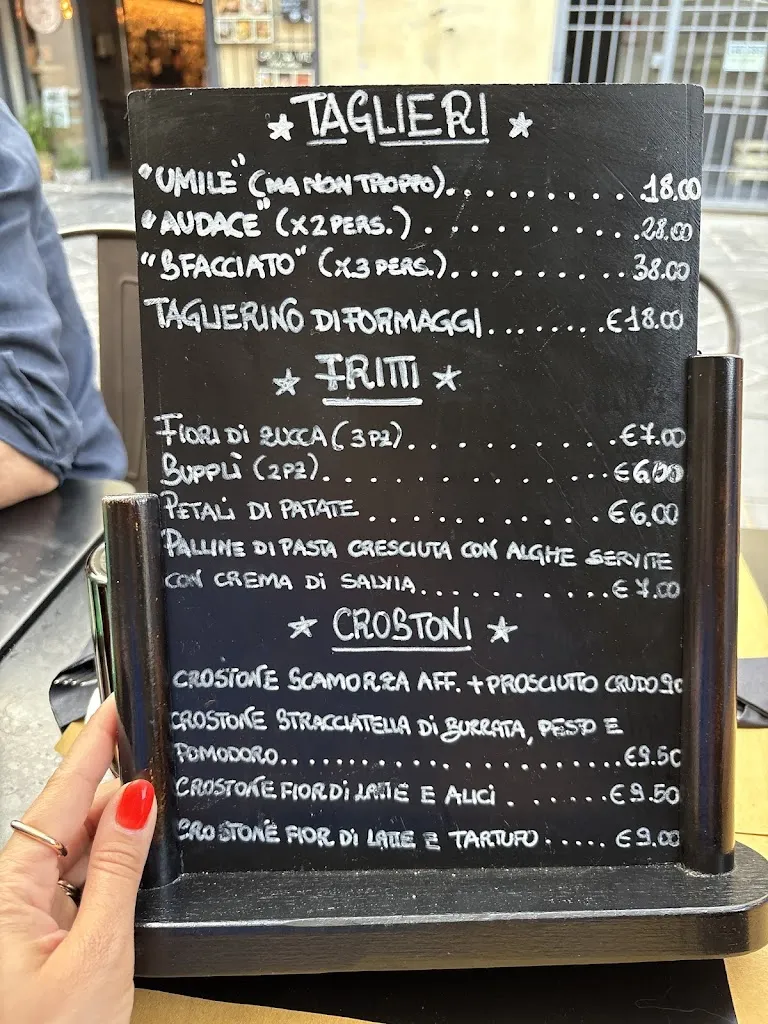 TAGLIERI
"UMILE" (MA NON TROPPO).......... 18.00
"AUDACE" (X2 PERS.)...........28.00
"SFACCIATO" (X3 PERS.)..........38.00
TAGLIERINO DI FORMAGGI........€18.00
FRITTI
FIORI DI ZUCCA (3PZ)...........€7.00
SUPPLÌ (2PZ)................€6.00
PETALI DI PATATE...........€6.00
PALLINE DI PASTA CRESCIUTA CON ALGHE SERVITE
CON CREMA DI SALVIA...........€7.00
CROSTONI
CROSTONE SCAMORZA AFF. + PROSCIUTTO CRUDO
CROSTONE STRACCIATELLA DI BURRATA, PESTO E
POMODORO..................€9.50
CROSTONE FIOR DI LATTE E ALICI.......€9.50
CROSTONE FIOR DI LATTE E TARTUFO.....€9.00